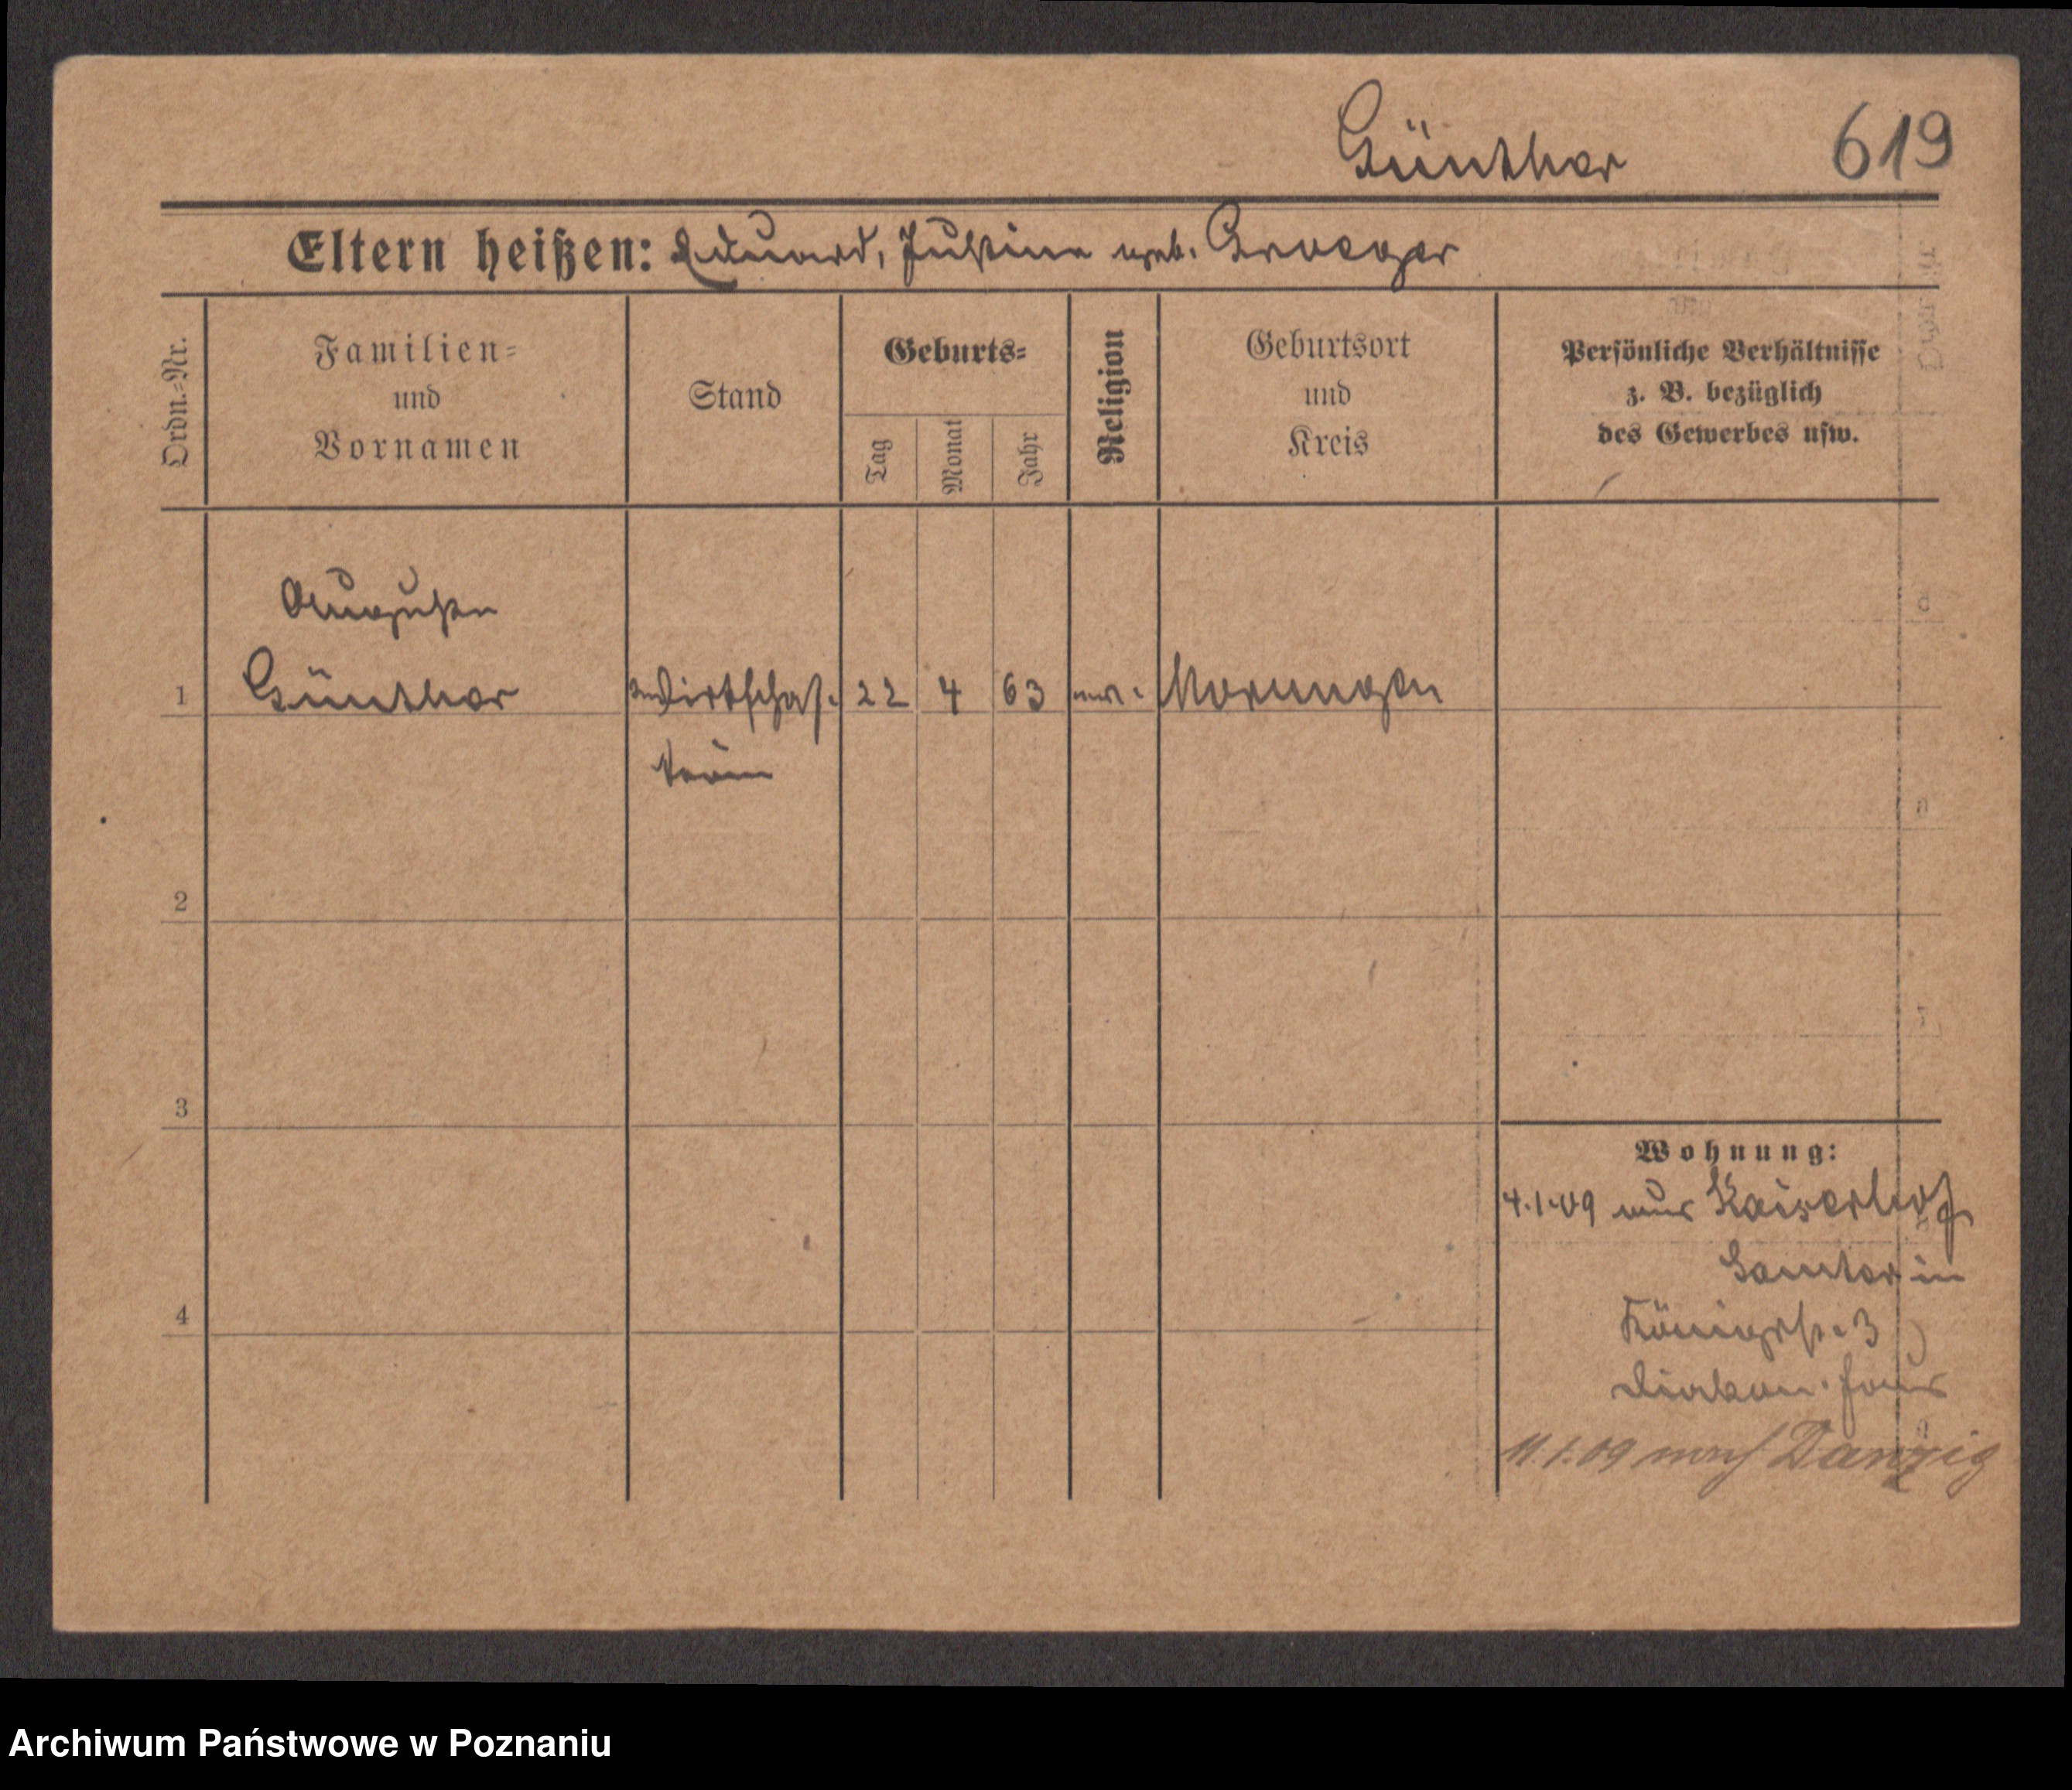 Günther 619
Eltern heißen: Eduard, Justine geb. Groeger
Ordn.=Nr.
Familien=
und
Vornamen
Stand
Geburts=
Tag
Monat
Jahr
Religion
Geburtsort
und
Kreis
Persönliche Verhältnisse
z. B. bezüglich
des Gewerbes usw.
Auguste
1 Günther Wirtschaf= 22 4 63 Morungen
terin
2
3
4
Wohnung:
4.1.09 aus Kaiserhof
Samter in
Königstr. 3
Diakon. Haus
11.1.09 nach Danzig
Archiwum Państwowe w Poznaniu